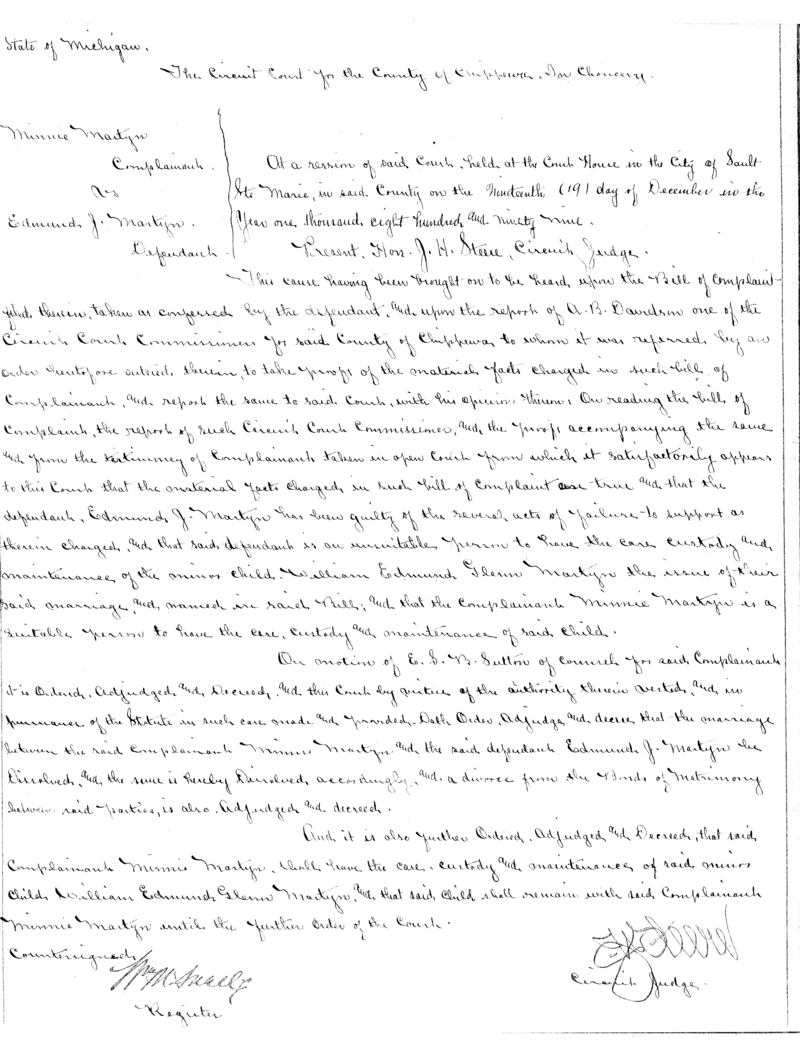 State of Michigan.
The Circuit Court for the County of Chippewa. In Chancery.
Minnie Martyn
Complainant.
vs
Edmund J. Martyn.
Defendant.
At a session of said Court, held at the Court House in the City of Sault
Ste Marie, in said County on the Nineteenth (19) day of December in the
Year one thousand eight hundred and ninety nine.
Present, Hon. J. H. Steere, Circuit Judge.
This cause having been brought on to be heard upon the Bill of Complaint
filed therein, taken as confessed by the defendant, and upon the report of A. B. Davidson one of the
Circuit Court Commissioners for said County of Chippewa, to whom it was referred by an
order heretofore entered therein, to take proofs of the material facts charged in such bill of
Complaint, and report the same to said Court, with his opinion thereon; On reading the bill of
Complaint, the report of such Circuit Court Commissioner, and the proofs accompanying the same
and from the testimony of Complainant taken in open Court from which it satisfactorily appears
to this Court that the material facts charged in such bill of Complaint are true and that the
defendant, Edmund J. Martyn has been guilty of the several acts of failure to support as
therein charged, and that said defendant is an unsuitable person to have the care custody and
maintenance of the minor child William Edmund Glenn Martyn the issue of their
said marriage, and named in said Bill; and that the Complainant Minnie Martyn is a
suitable person to have the care, custody and maintenance of said child.
On motion of E. S. B. Sutton of counsel for said Complainant
it is Ordered, Adjudged and Decreed, and this Court by virtue of the authority therein vested, and in
pursuance of the Statute in such case made and provided. Doth Order, Adjudge and decree that the marriage
between the said Complainant Minnie Martyn and the said defendant Edmund J. Martyn be
Dissolved, and the same is hereby Dissolved accordingly, and a divorce from the Bonds of Matrimony
between said parties, is also Adjudged and decreed.
And it is also further Ordered, Adjudged and Decreed, that said
Complainant Minnie Martyn, shall have the care, custody and maintenance of said minor
child William Edmund Glenn Martyn, and that said child shall remain with said Complainant
Minnie Martyn until the further Order of the Court.
Countersigned,
Wm M Snell
Register
J H Steere
Circuit Judge.